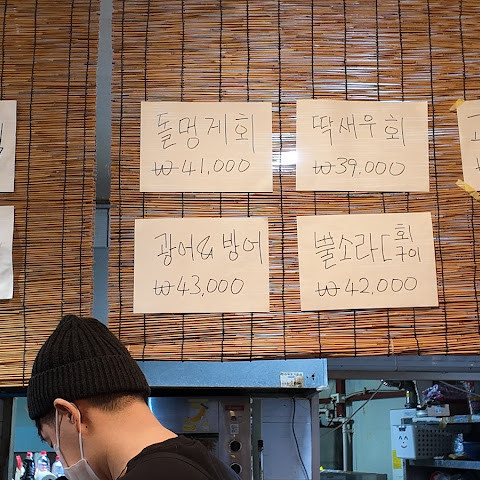 돌멍게회
₩41,000
딱새우회
₩39,000
광어&방어
₩43,000
뿔소라[회
구이
₩42,000